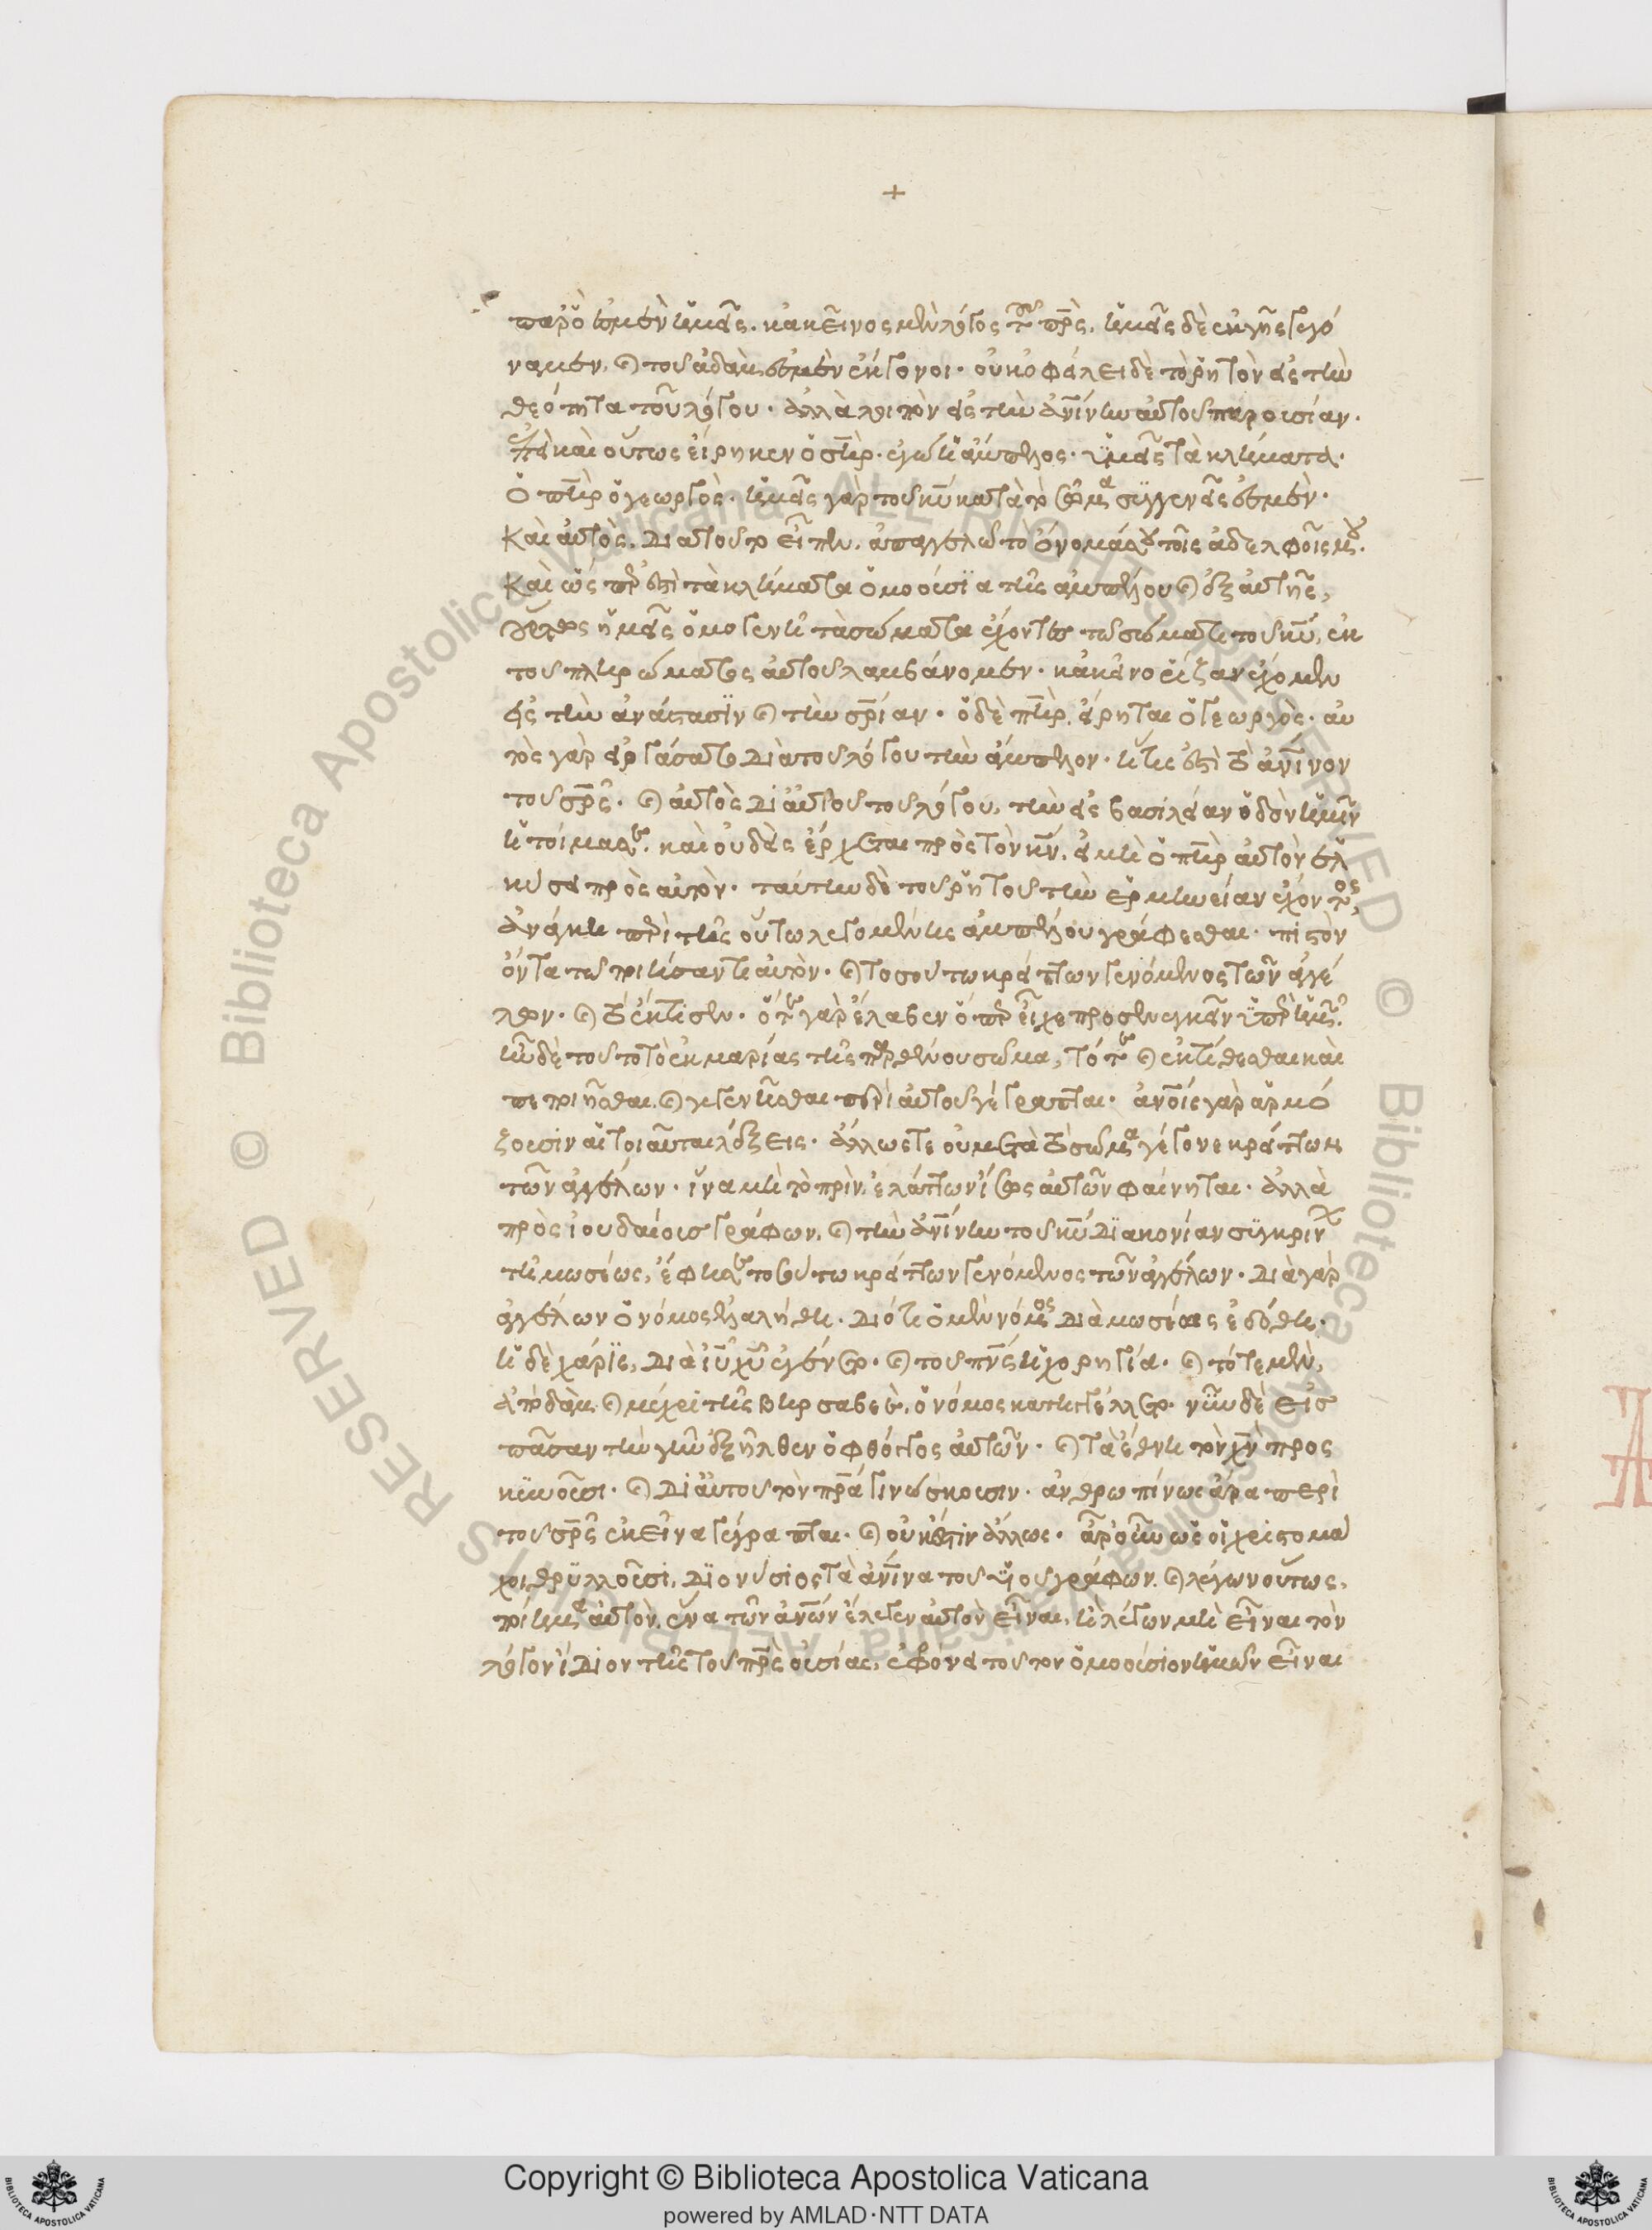 +
παρὸ ἐσμὲν ἡμεῖς. κἀκεῖνος μὲν λόγος τοῦ πρς. ἡμεῖς δὲ ἐκ γῆς γεγό
ναμεν, καὶ τοῦ ἀδάμ ἐσμὲν ἔκγονοι. οὐκ ὀφείλει δὲ τὸ ῥητὸν εἰς τὴν
θεότητα τοῦ λόγου. ἀλλὰ λοιπὸν εἰς τὴν ἀνίνην αὐτοῦ παρουσίαν.
ἐπεὶ καὶ οὕτως εἴρηκεν ὁ σηρ. ἐγὼ ἡ ἄμπελος. ὑμεῖς τὰ κλήματα.
ὁ πηρ ὁ γεωργός. ἡμεῖς γὰρ τοῦ κυ κατὰ τὸ σῶμα συγγενεῖς ἐσμὲν.
Καὶ αὐτὸς, διὰ τοῦτο εἶπεν. ἀπαγγελῶ τὸ ὄνομά σου τοῖς ἀδελφοῖς μου.
Καὶ ὥσπερ ἐστὶ τὰ κλήματα ὁμοούσια τῆς ἀμπέλου καὶ ἐξ αὐτῆς,
οὕτως ἡμεῖς ὁμογενῆ τὰ σώματα ἔχοντες τῷ σώματι τοῦ κυ, ἐκ
τοῦ πληρώματος αὐτοῦ λαμβάνομεν. κἀκεῖνο ῥίζαν ἔχομεν
εἰς τὴν ἀνάστασιν καὶ τὴν σρίαν. ὁ δὲ πηρ, εἴρηται ὁ γεωργός. αὐ
τὸς γὰρ εἰργάσατο διὰ τοῦ λόγου τὴν ἄμπελον. ἥτις ἐστὶ τὸ ἀνινον
τοῦ σρς. καὶ αὐτὸς δι αὐτοῦ τοῦ λόγου, τὴν εἰς βασιλείαν ὁδὸν ἡμῖν
ἡτοίμασε. καὶ οὐδεὶς ἔρχεται πρὸς τὸν κν, εἰ μὴ ὁ πηρ αὐτὸν ἑλ
κύσει πρὸς αὐτὸν. ταύτην δὲ τοῦ ῥητοῦ τὴν ἑρμηνείαν ἔχοντος,
ἀνάγκη περὶ τῆς οὕτω λεγομένης ἀμπέλου γράφεσθαι. πιστὸν
ὄντα τῷ ποιήσαντι αὐτὸν. καὶ τοσούτω κρείττων γενόμενος τῶν ἀγγέ
λων. καὶ τὸ ἔκτισεν. ὅτε γὰρ ἔλαβεν ὅπερ εἶχε προσενεγκεῖν ὑπὲρ ἡμῶν.
ἦν δὲ τοῦτο τὸ ἐκ μαρίας τῆς παρθένου σῶμα, τότε καὶ ἐκτίσθαι καὶ
πεποιῆσθαι, καὶ γεγενῆσθαι περὶ αὐτοῦ γέγραπται. ἀνοις γὰρ ἁρμό
ζουσιν αἱ τοιαῦται λέξεις. ἄλλως τε οὐ μετὰ τὸ σῶμα γέγονε κρείττων
τῶν ἀγγέλων. ἵνα μὴ τὸ πρὶν, ἐλάττων ἢ ἴσος αὐτῶν φαίνηται. ἀλλὰ
πρὸς ἰουδαίους γράφων, καὶ τὴν ἀνίνην τοῦ κυ διακονίαν συγκρίν
τῇ μωσέως, ἔφησε τοσούτω κρείττων γενόμενος τῶν ἀγγέλων. διὰ γὰρ
ἀγγέλων ὁ νόμος ἐλαλήθη. διότι ὁ μὲν νόμος διὰ μωσέως ἐδόθη.
ἡ δὲ χάρις, διὰ ιυ χυ ἐγένετο. καὶ τοῦ πνς ἡ χορηγία. καὶ τότε μὲν,
ἀπὸ δὰμ καὶ μέχρι τῆς βηρσαβεὲ, ὁ νόμος κατηγγέλλετο. νῦν δὲ εἰσ
πᾶσαν τὴν γῆν ἐξῆλθεν ὁ φθόγγος αὐτῶν. καὶ τὰ ἔθνη τὸν χν προσ
κυνοῦσι. καὶ δι αὐτοῦ τὸν πρα γινώσκουσιν. ἀνθρωπίνως ἄρα περὶ
τοῦ σρς ἐκεῖνα γέγραπται. καὶ οὐκ ἔστιν ἄλλως. ἆρ οὖν ὡς οἱ χριστομά
χοι θρυλλοῦσι, διονύσιος τὰ ἀνινα τοῦ υἱοῦ γράφων, καὶ λέγων οὕτως,
ποίημα αὐτὸν, ἕνα τῶν ἀνων ἔλεγεν αὐτὸν εἶναι, ἢ λέγων μὴ εἶναι τὸν
λόγον ἴδιον τῆς τοῦ πρς οὐσίας, ἐφρόνει τοῦτον ὁμοούσιον ἡμῶν εἶναι
Copyright © Biblioteca Apostolica Vaticana
powered by AMLAD·NTT DATA